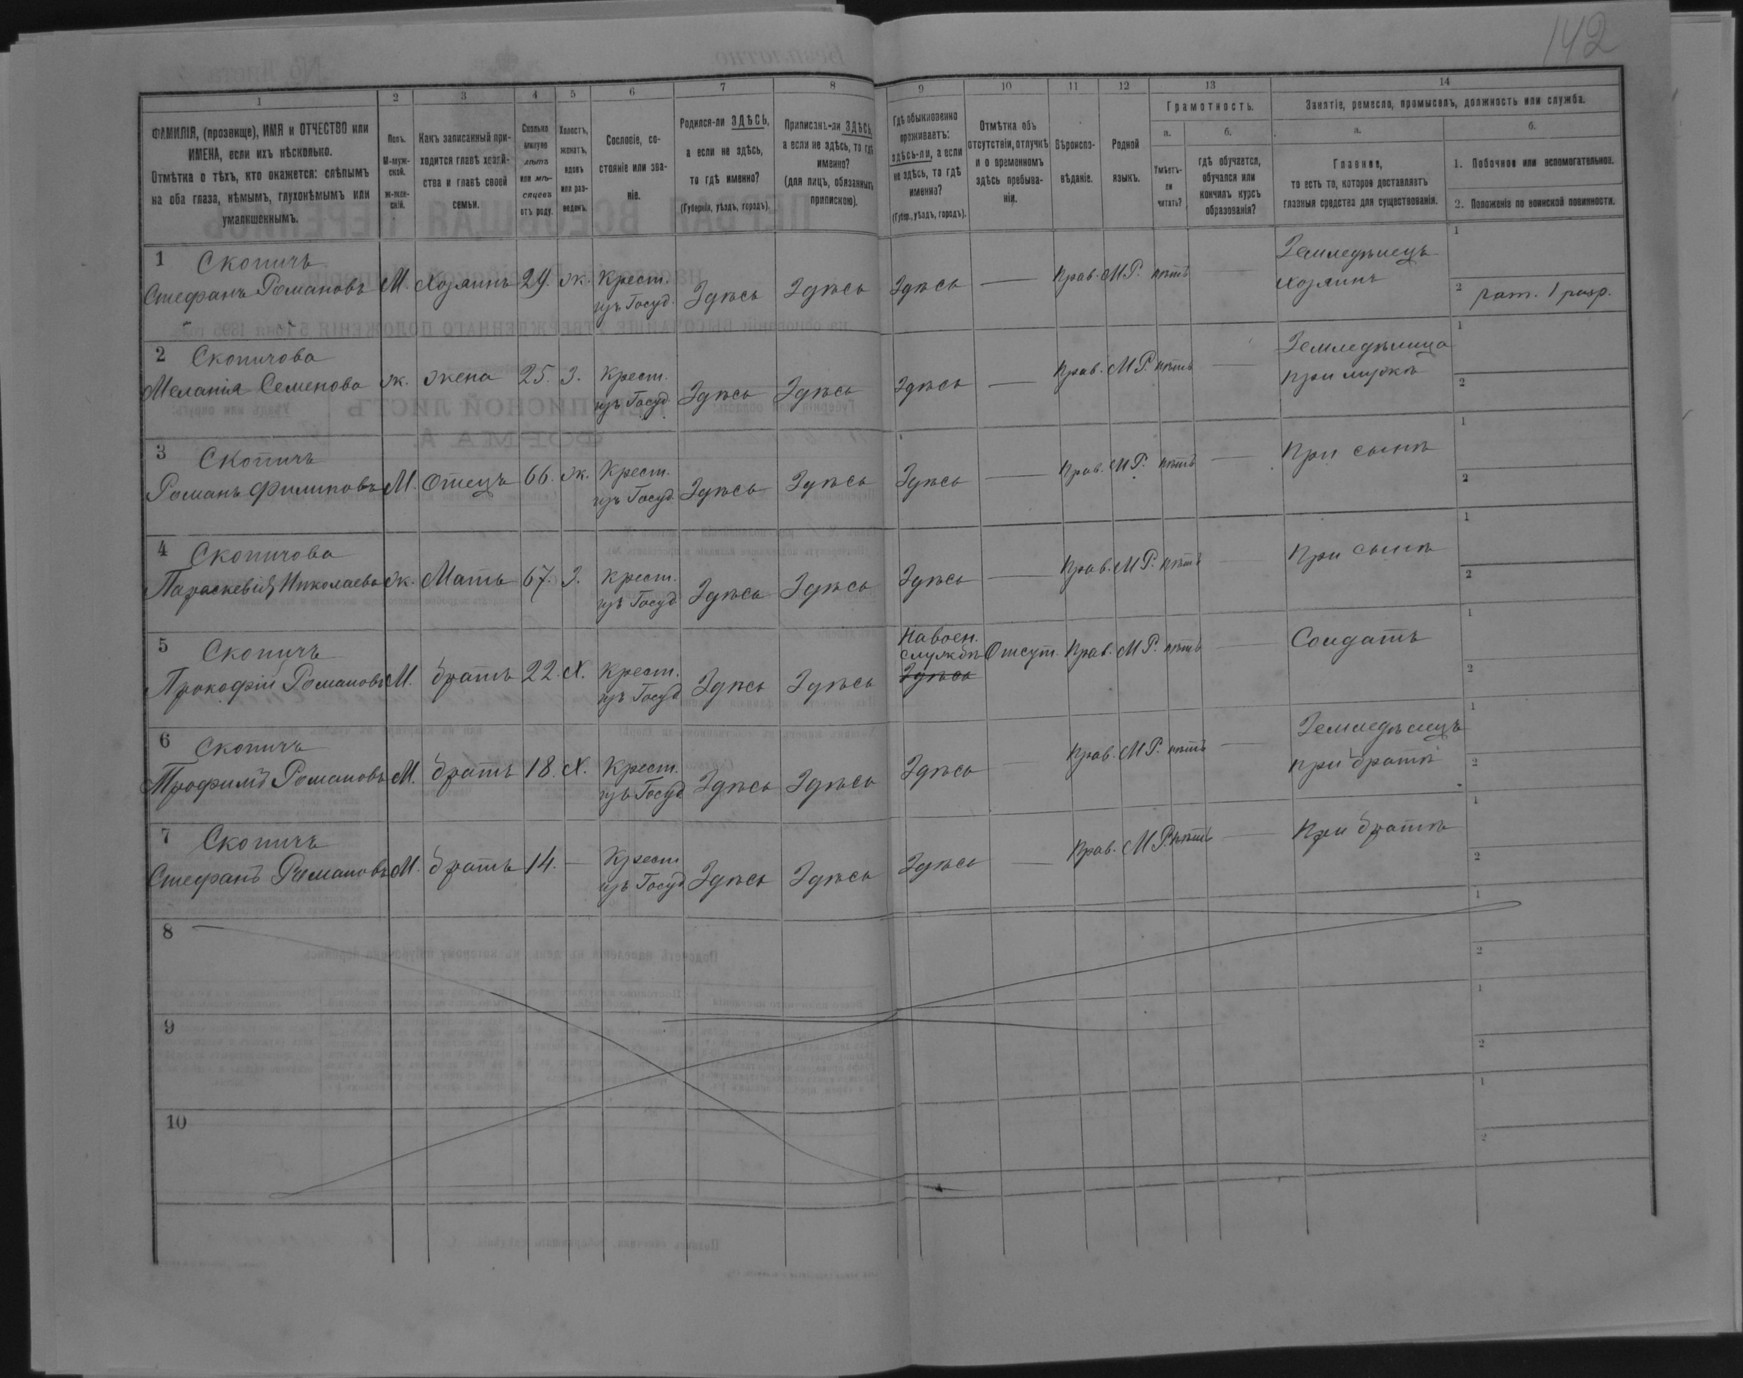 142
1 2 3 4 5 6 7 8 9 10 11 12 13 14
ФАМИЛІЯ, (прозвище), ИМЯ и ОТЧЕСТВО или
ИМЕНА, если ихъ нѣсколько.
Отмѣтка о тѣхъ, кто окажется: слѣпымъ
на оба глаза, нѣмымъ, глухонѣмымъ или
умалишеннымъ.
Полъ.
М-муж-
ской.
ж-жен-
скій.
Какъ записанный при-
ходится главѣ хозяй-
ства и главѣ своей
семьи.
Сколько
минуло
лѣтъ
или мѣ-
сяцевъ
отъ роду.
Холостъ,
женатъ,
вдовъ
или раз-
веденъ.
Сословіе, со-
стояніе или зва-
ніе.
Родился-ли ЗДѢСЬ,
а если не здѣсь,
то гдѣ именно?
(Губернія, уѣздъ, городъ).
Приписанъ-ли ЗДѢСЬ,
а если не здѣсь, то гдѣ
именно?
(для лицъ, обязанныхъ
припискою).
Гдѣ обыкновенно
проживаетъ:
здѣсь-ли, а если
не здѣсь, то гдѣ
именно?
(Губер., уѣздъ, городъ).
Отмѣтка объ
отсутствіи, отлучкѣ
и о временномъ
здѣсь пребыва-
ніи.
Вѣроиспо-
вѣданіе.
Родной
языкъ.
Грамотность.
а.
Умѣетъ-
ли
читать?
б.
гдѣ обучается,
обучался или
кончилъ курсъ
образованія?
Занятіе, ремесло, промыселъ, должность или служба.
а.
Главное,
то есть то, которое доставляетъ
главныя средства для существованія.
б.
1. Побочное или вспомогательное.
2. Положеніе по воинской повинности.
1 Скопичъ
Стефанъ Романовъ М. Хозяинъ 29. ж. Крест. изъ Госуд. Здѣсь Здѣсь Здѣсь — Прав. М.Р. нѣтъ — Земледѣлецъ хозяинъ
1
2 рат. 1 разр.
2 Скопичова
Меланія Семенова ж. жена 25. З. Крест. изъ Госуд. Здѣсь Здѣсь Здѣсь — Прав. М.Р. нѣтъ — Земледѣлица при мужѣ
1
2
3 Скопичъ
Романъ Филиповъ М. Отецъ 66. ж. Крест. изъ Госуд. Здѣсь Здѣсь Здѣсь — Прав. М.Р. нѣтъ — При сынѣ
1
2
4 Скопичова
Параскевія Николаева ж. Мать 67. З. Крест. изъ Госуд. Здѣсь Здѣсь Здѣсь — Прав. М.Р. нѣтъ — при сынѣ
1
2
5 Скопичъ
Прокофій Романовъ М. братъ 22. Х. Крест. изъ Госуд. Здѣсь Здѣсь На воен. службѣ Здѣсь Отсут. Прав. М.Р. нѣтъ — Солдатъ
1
2
6 Скопичъ
Трофимъ Романовъ М. братъ 18. Х. Крест. изъ Госуд. Здѣсь Здѣсь Здѣсь — Прав. М.Р. нѣтъ — Земледѣлецъ при братѣ
1
2
7 Скопичъ
Стефанъ Романовъ М. братъ 14. — Крест. изъ Госуд. Здѣсь Здѣсь Здѣсь — Прав. М.Р. нѣтъ — При братѣ
1
2
8
1
2
9
1
2
10
1
2